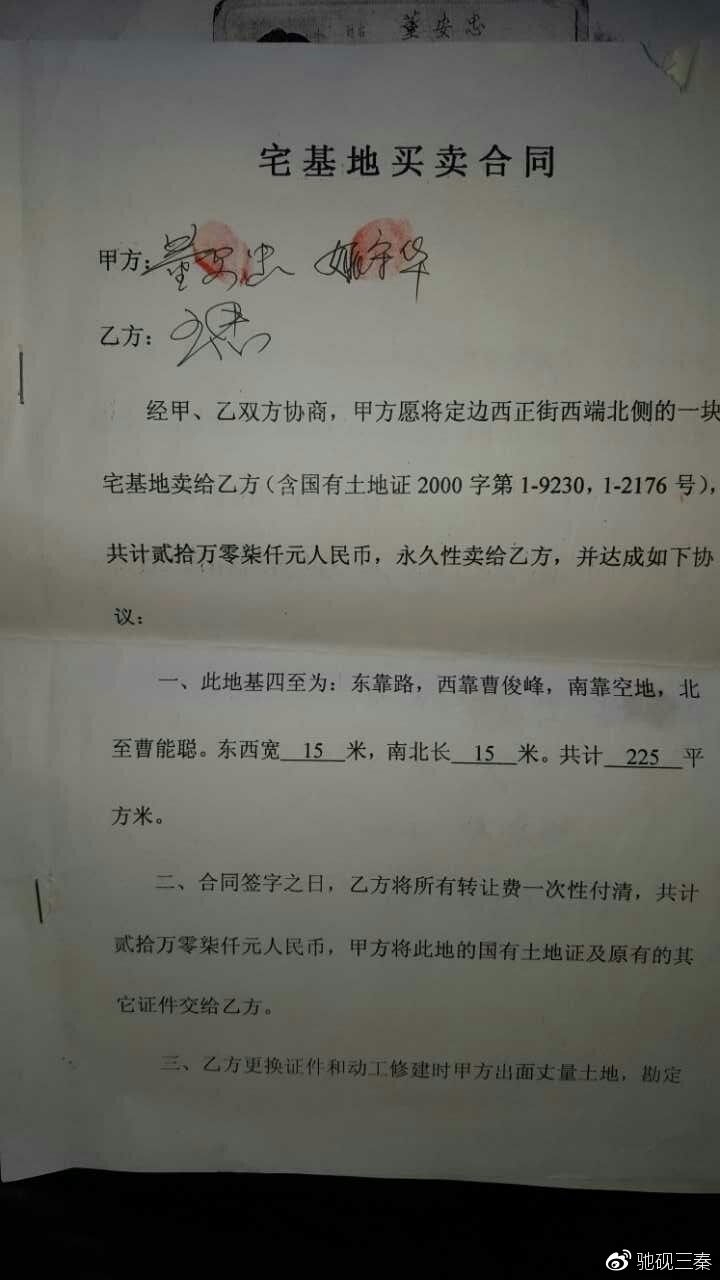 董安忠
宅基地买卖合同
甲方：董安忠 姬守华
乙方：
经甲、乙双方协商，甲方愿将定边西正街西端北侧的一块
宅基地卖给乙方（含国有土地证2000字第1-9230，1-2176号），
共计贰拾万零柒仟元人民币，永久性卖给乙方，并达成如下协
议：
一、此地基四至为：东靠路，西靠曹俊峰，南靠空地，北
至曹能聪。东西宽 15 米，南北长 15 米。共计 225 平
方米。
二、合同签字之日，乙方将所有转让费一次性付清，共计
贰拾万零柒仟元人民币，甲方将此地的国有土地证及原有的其
它证件交给乙方。
三、乙方更换证件和动工修建时甲方出面丈量土地，勘定
驰砚三秦